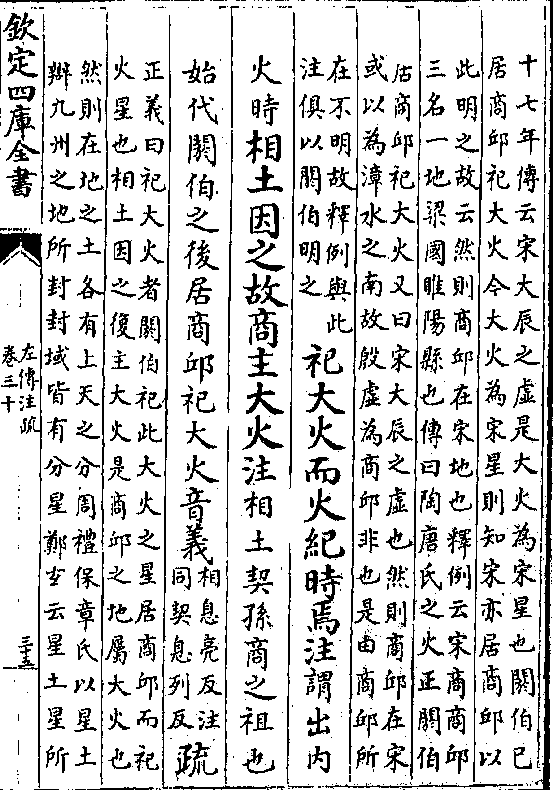 十七年傳云宋大辰之虛是大火為宋星也閼伯已
居商邱祀大火今大火為宋星則知宋亦居商邱以
此明之故云然則商邱在宋地也釋例云宋商商邱
三名一地梁國睢陽縣也傳曰陶唐氏之火正閼伯
居商邱祀大火又曰宋大辰之虛也然則商邱在宋
或以為漳水之南故殷虛為商邱非也是由商邱所
在不明故釋例與此
注俱以閼伯明之
祀大火而火紀時焉注謂出内
火時相土因之故商主大火注相土契孫商之祖也
始代閼伯之後居商邱祀大火音義
相息亮反注
同契息列反
疏
正義曰祀大火者閼伯祀此大火之星居商邱而祀
火星也相土因之復主大火是商邱之地屬大火也
然則在地之土各有上天之分周禮保章氏以星土
辨九州之地所封封域皆有分星鄭玄云星土星所
欽定四庫全書
左傳注疏
卷三十
三十五